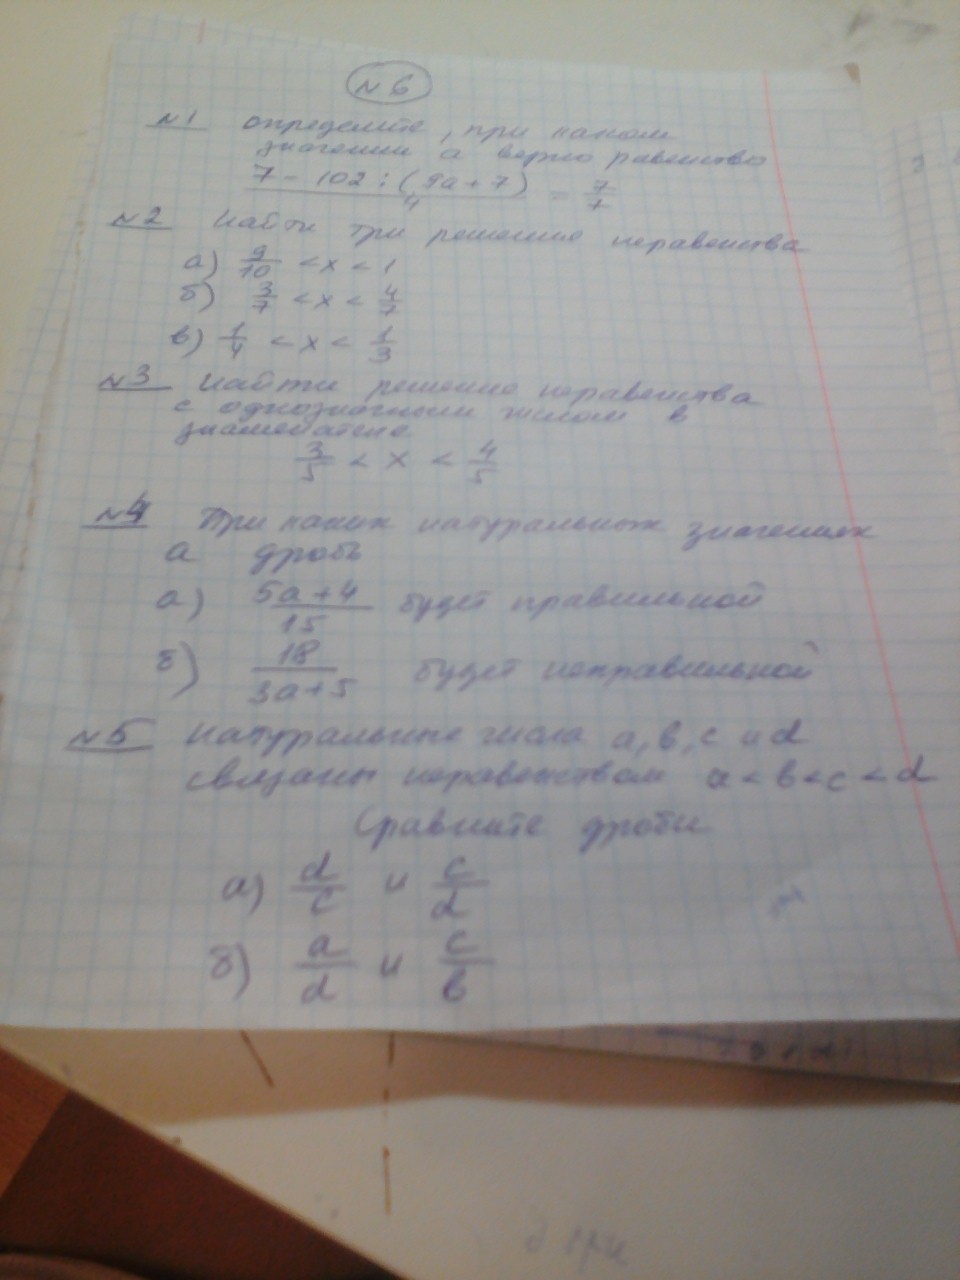 №6
№1 определите, при каком
значении а верно равенство
7 - 102 : (9a + 7) / 4 = 7/7
№2 Найти три решение неравенства
а) 9/10 < x < 1
б) 3/7 < x < 4/7
в) 1/4 < x < 1/3
№3 Найти решение неравенства
с однозначным числом в
знаменателе
3/5 < x < 4/5
№4 При каких натуральных значениях
а дробь
а) 5a+4/15 будет правильной
б) 18/3a+5 будет неправильной
№5 Натуральные числа а, в, с и d
связаны неравенством a < в < c < d
Сравните дроби
а) d/c и c/d
б) a/d и c/в